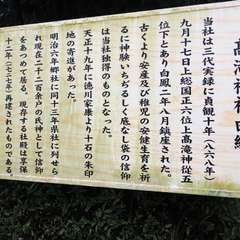 高滝神社由緒
当社は三代実録に貞観十年(八六八年)
九月十七日上総国正六位上高滝神従五
位下とあり白鳳二年八月鎮座された。
古くより安産及び稚児の安健生育を祈
るに神験いちぢるしく底なし袋の信仰
は当社独得のものとなった。
天正十九年に徳川家康より十石の朱印
地の寄進があった。
明治六年郷社に同十三年県社に列せら
れ現在二千二百余戸の氏神として信仰
をあつめて居る。現存する社殿は享保
十二年(一七二七年)再建されたものである。